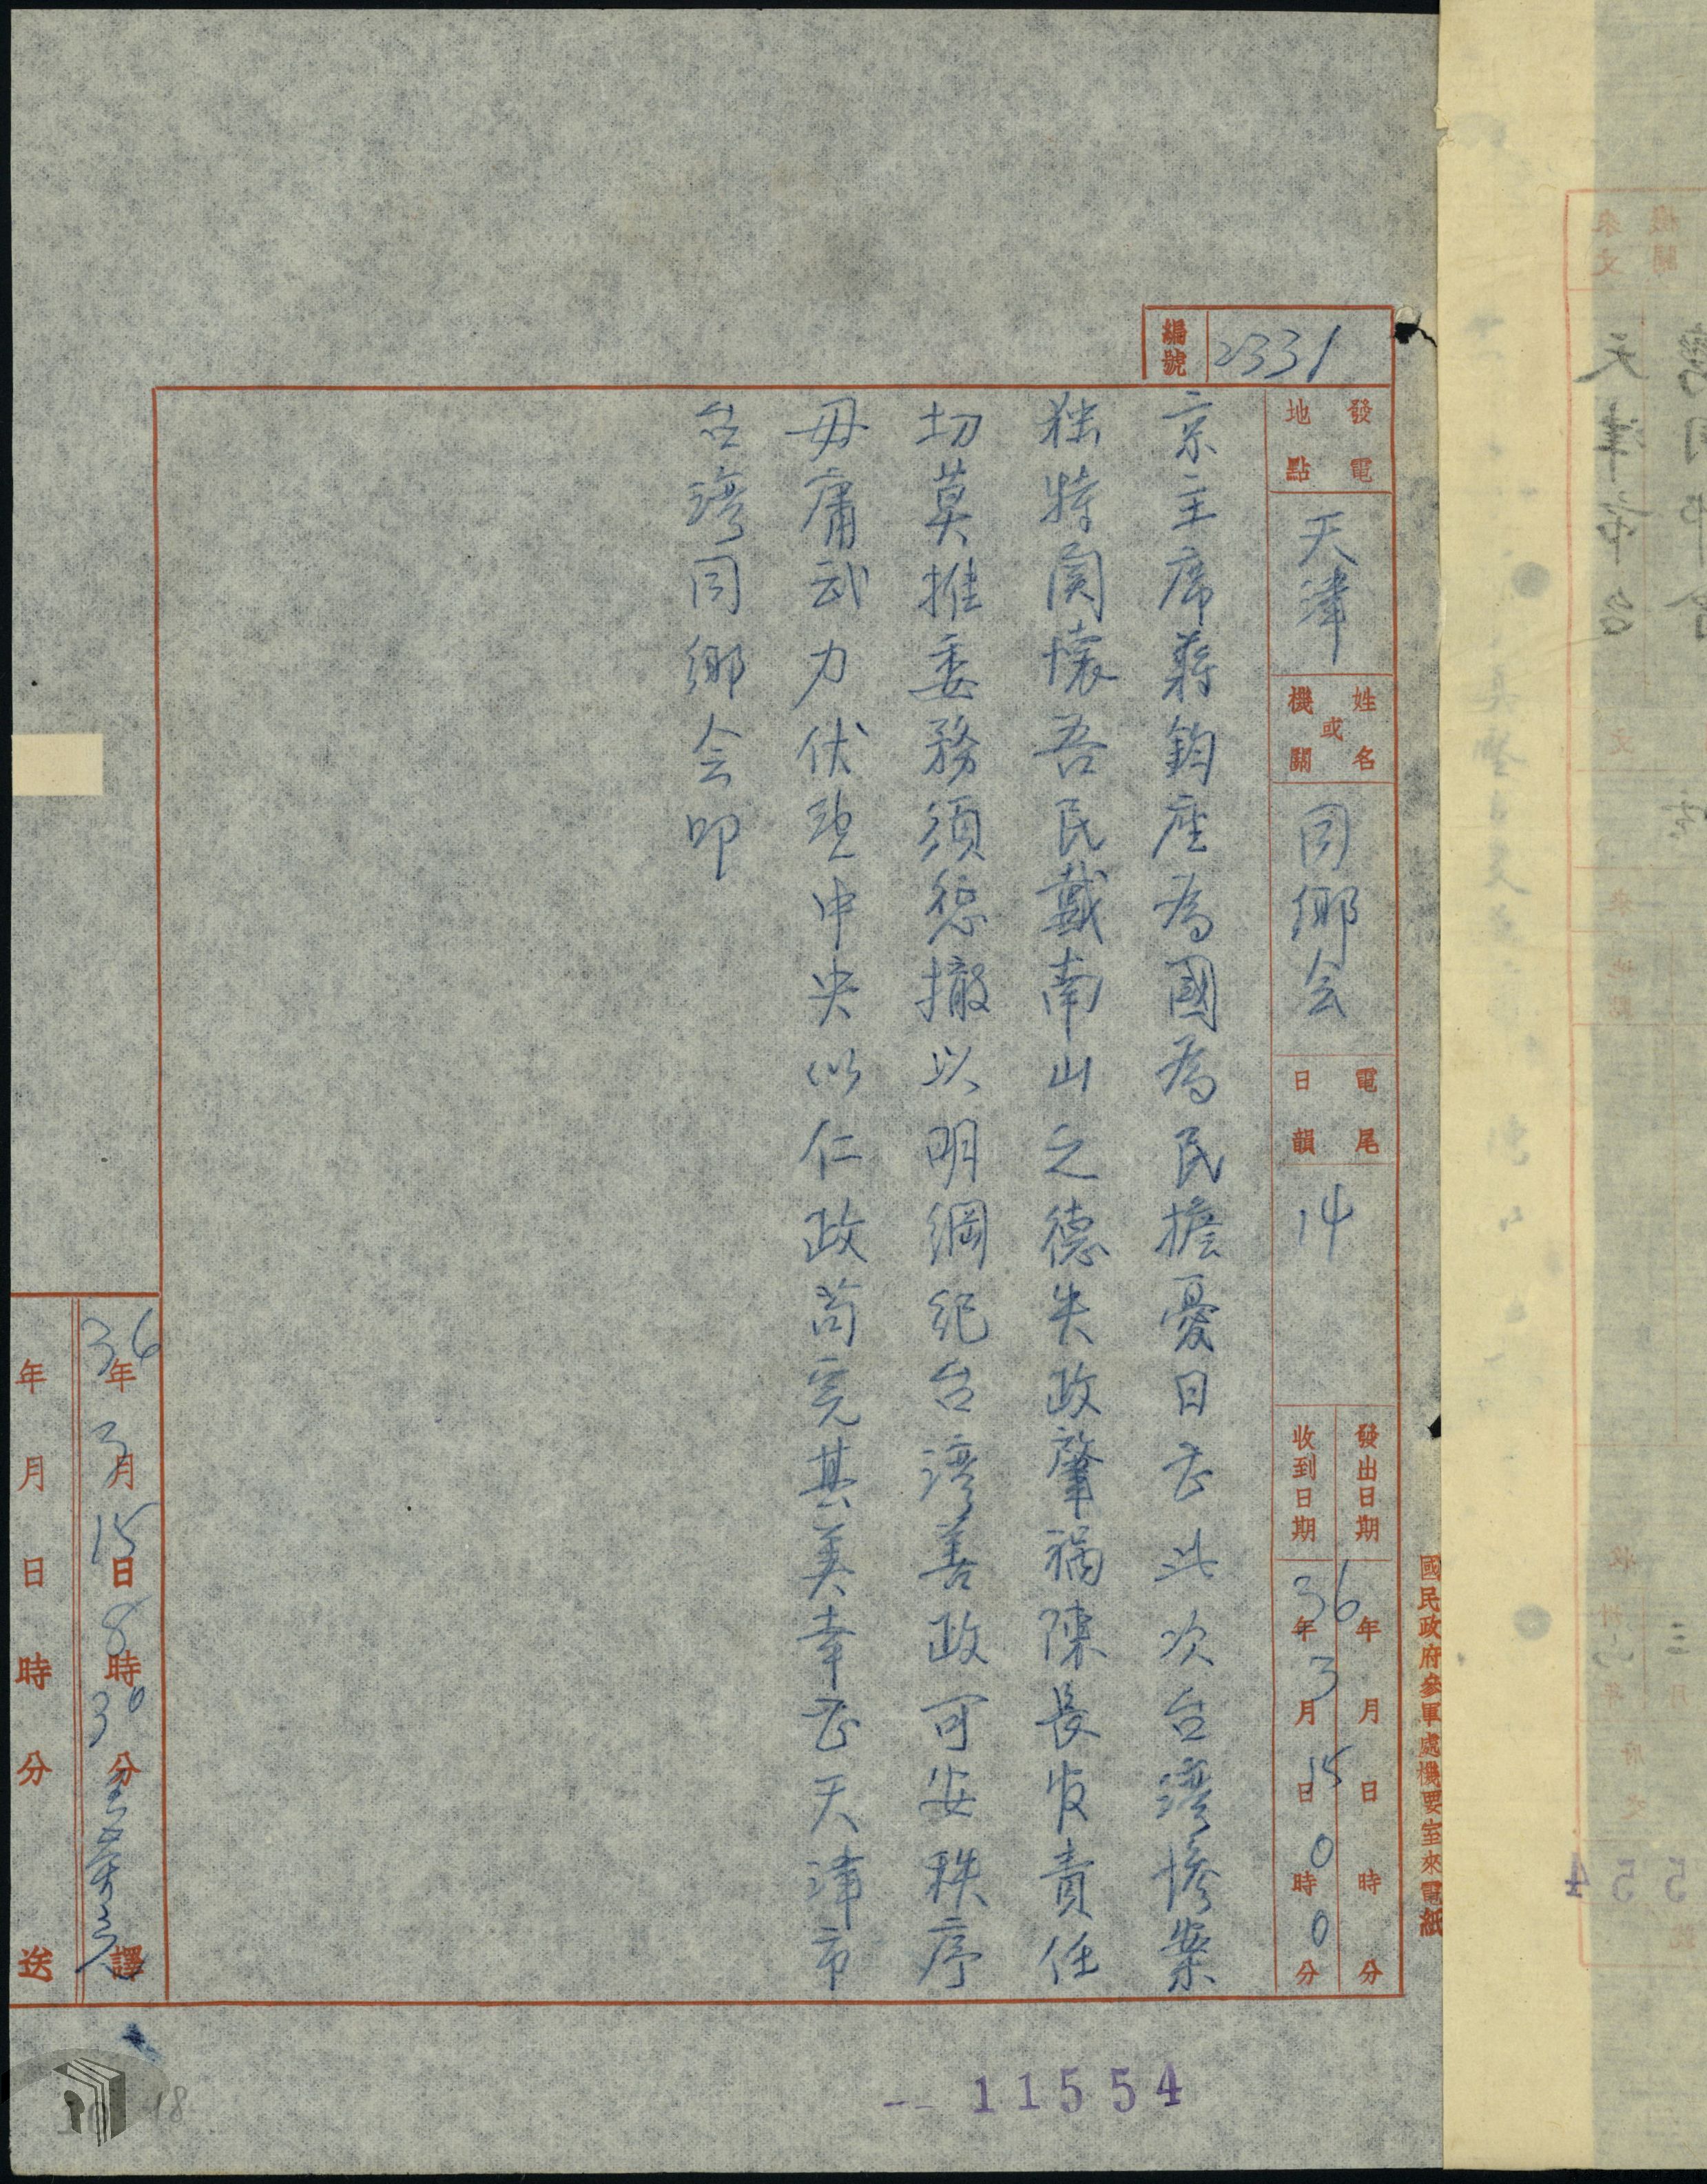 國民政府參軍處機要室來電紙
編號 2331
發電地點 天津
姓名或機關 同鄉会
電尾日韻 14
發出日期 36年3月15日0時0分
收到日期 年月日時分
京主席蔣鈞座為國為民擔憂日甚此次台灣慘案
独特関懷吾民戴南山之德失政肇禍陳長官責任
切莫推委務須懲撤以明綱紀台灣善政可安秩序
毋庸武力伏望中央似仁政苟完其美幸甚天津市
台灣同鄉会叩
36年3月15日8時30分 譯
年月日時分送
11554
18